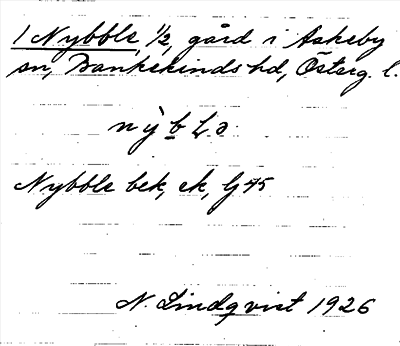 1 Nybble, 1/2, gård i Askeby
sn, Bankekinds hd, Österg. l.
Nybble bek, ek, G 45
N. Lindqvist 1926